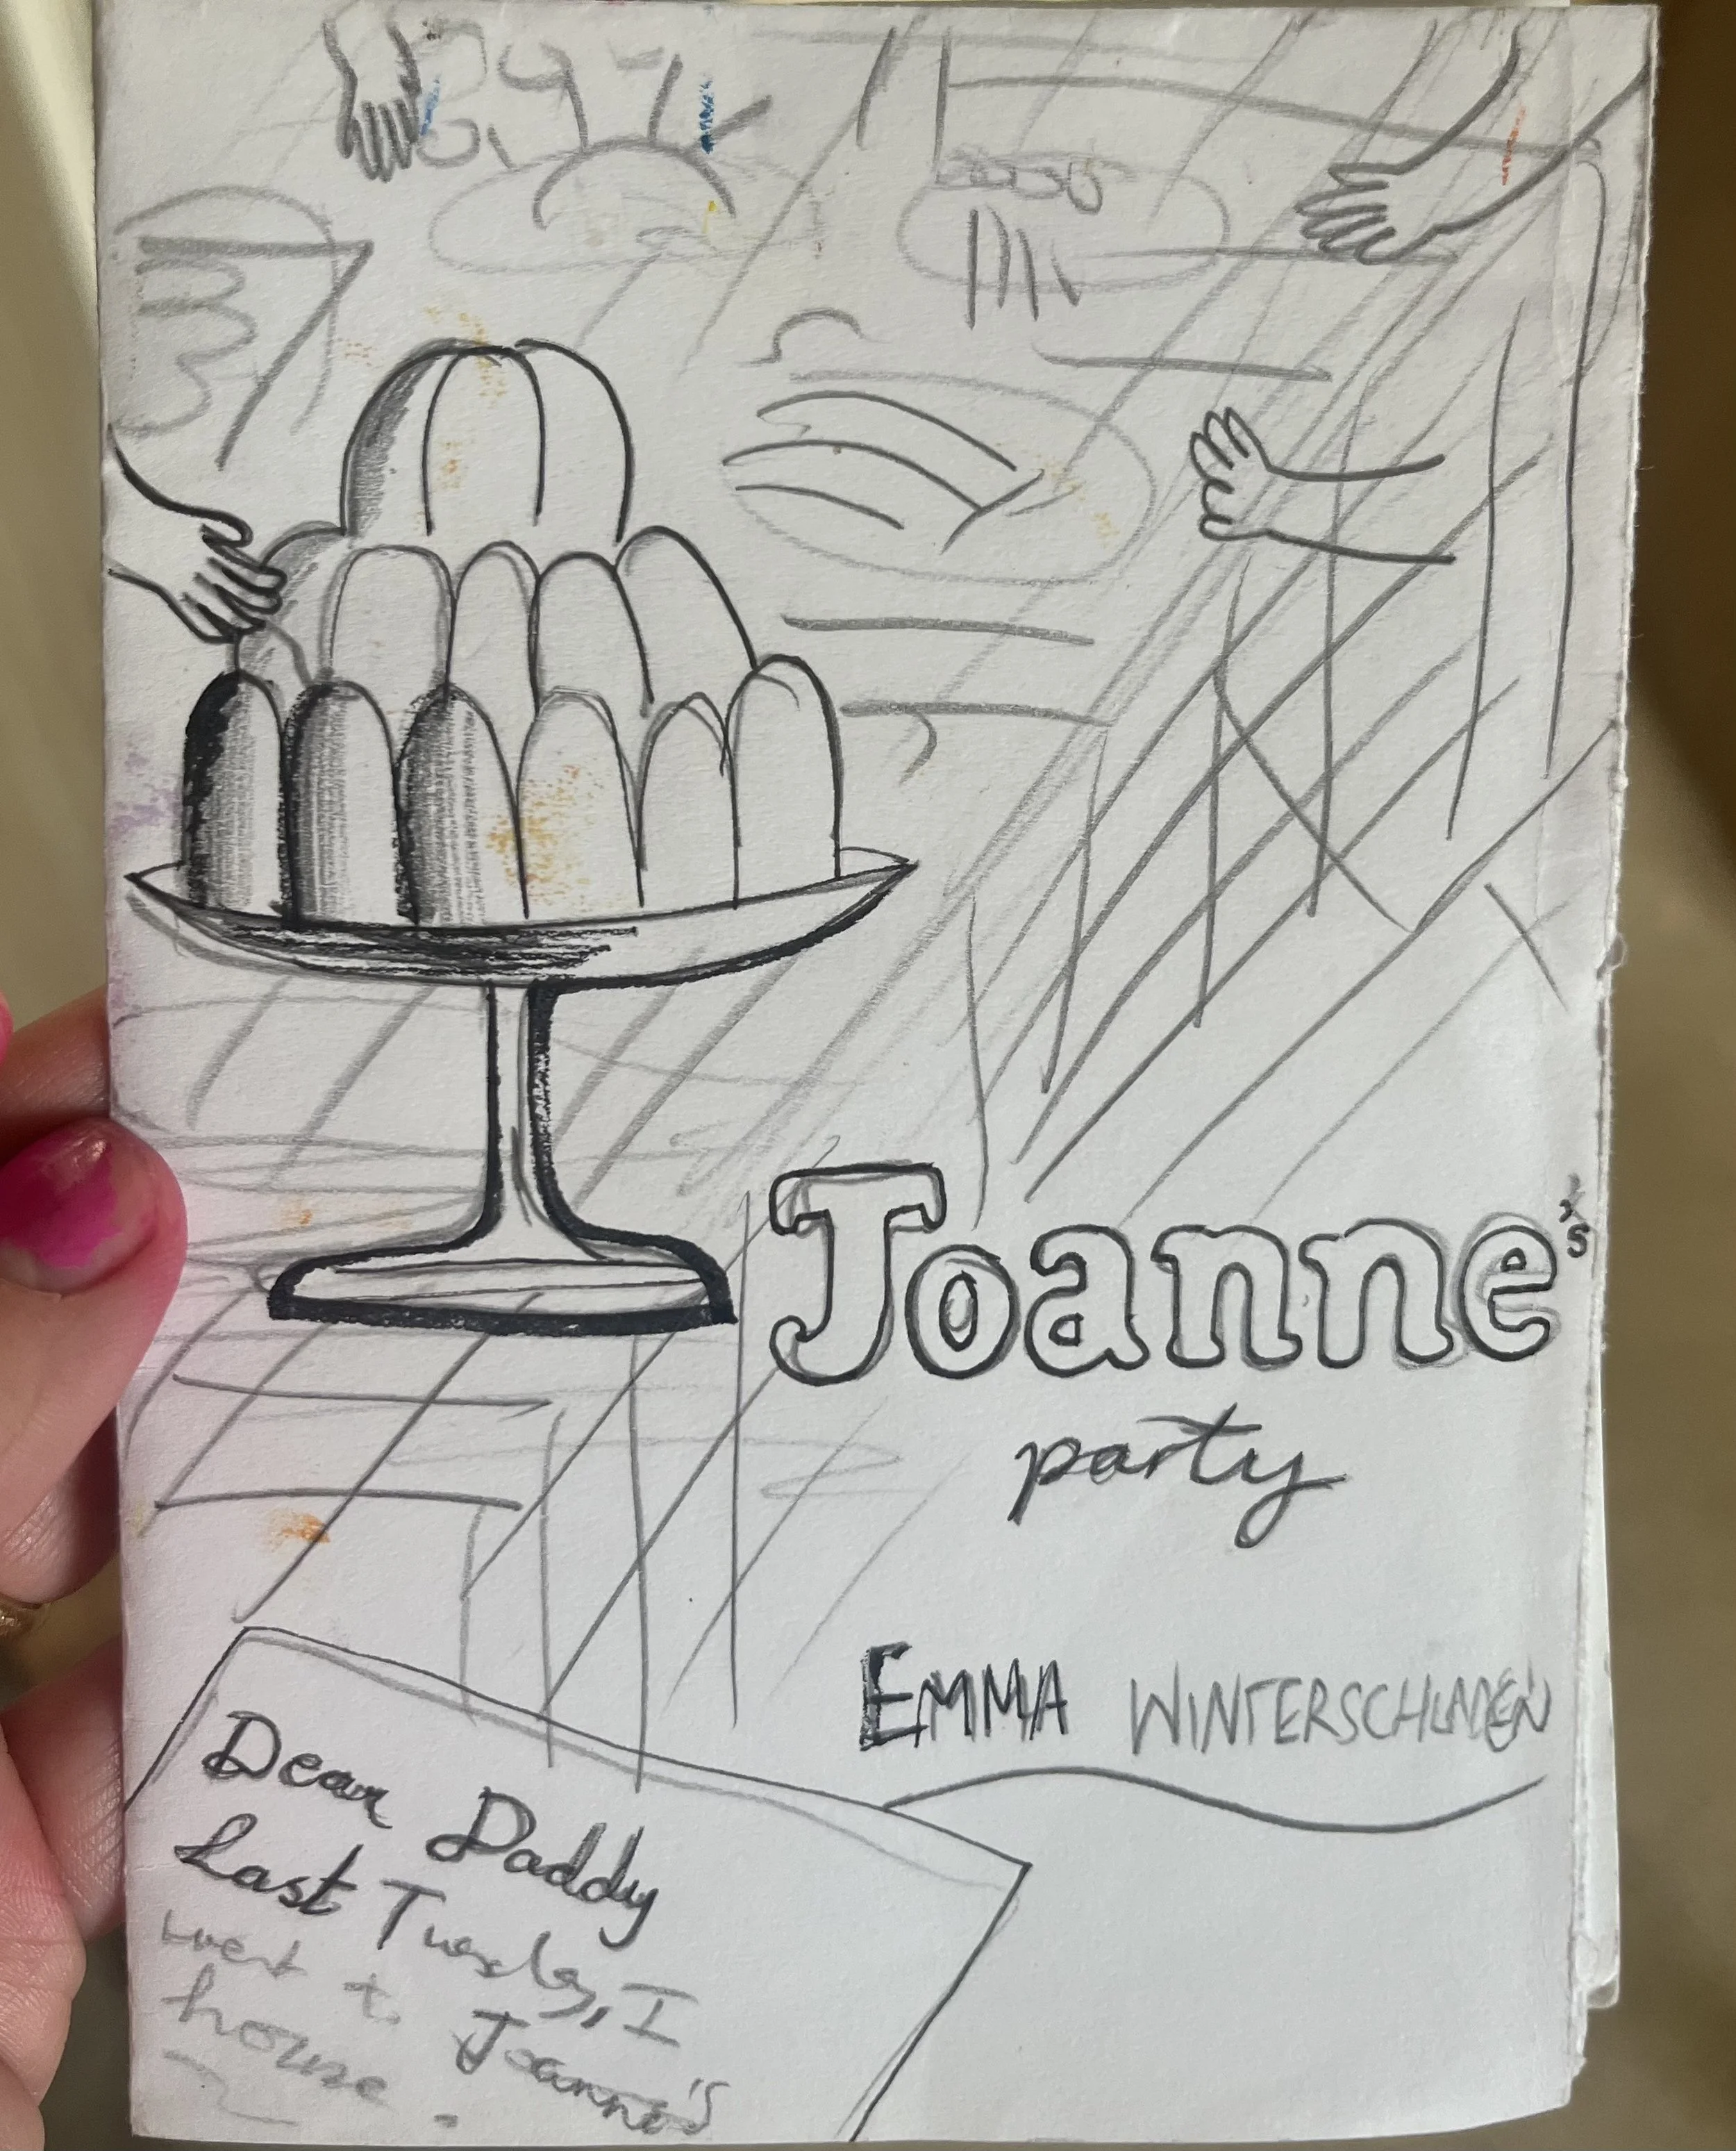 Joanne's
party
EMMA WINTERSCHLADEN
Dear Daddy
Last Tuesday, I
went to Joanne's
house.